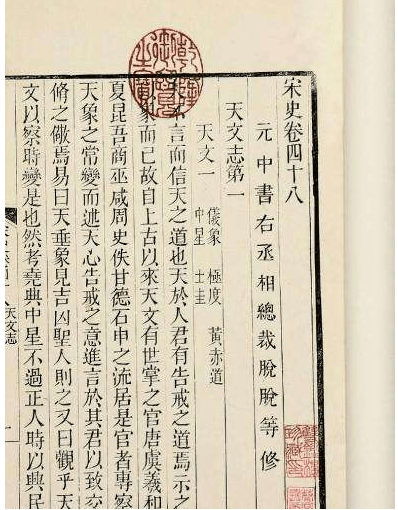 宋史卷四十八
元中書右丞相總裁脫脫等修
天文志第一
天文一 儀象 極度 黃赤道
中星 土圭
言而信天之道也天於人君有告戒之道焉示之
象而已故自上古以來天文有世掌之官唐虞羲和
夏昆吾商巫咸周史佚甘德石申之流居是官者專察
天象之常變而述天心告戒之意進言於其君以致交
脩之儆焉易曰天垂象見吉凶聖人則之又曰觀乎天
文以察時變是也然考堯典中星不過正人時以興民
天文志
一
乾隆御覽之寶